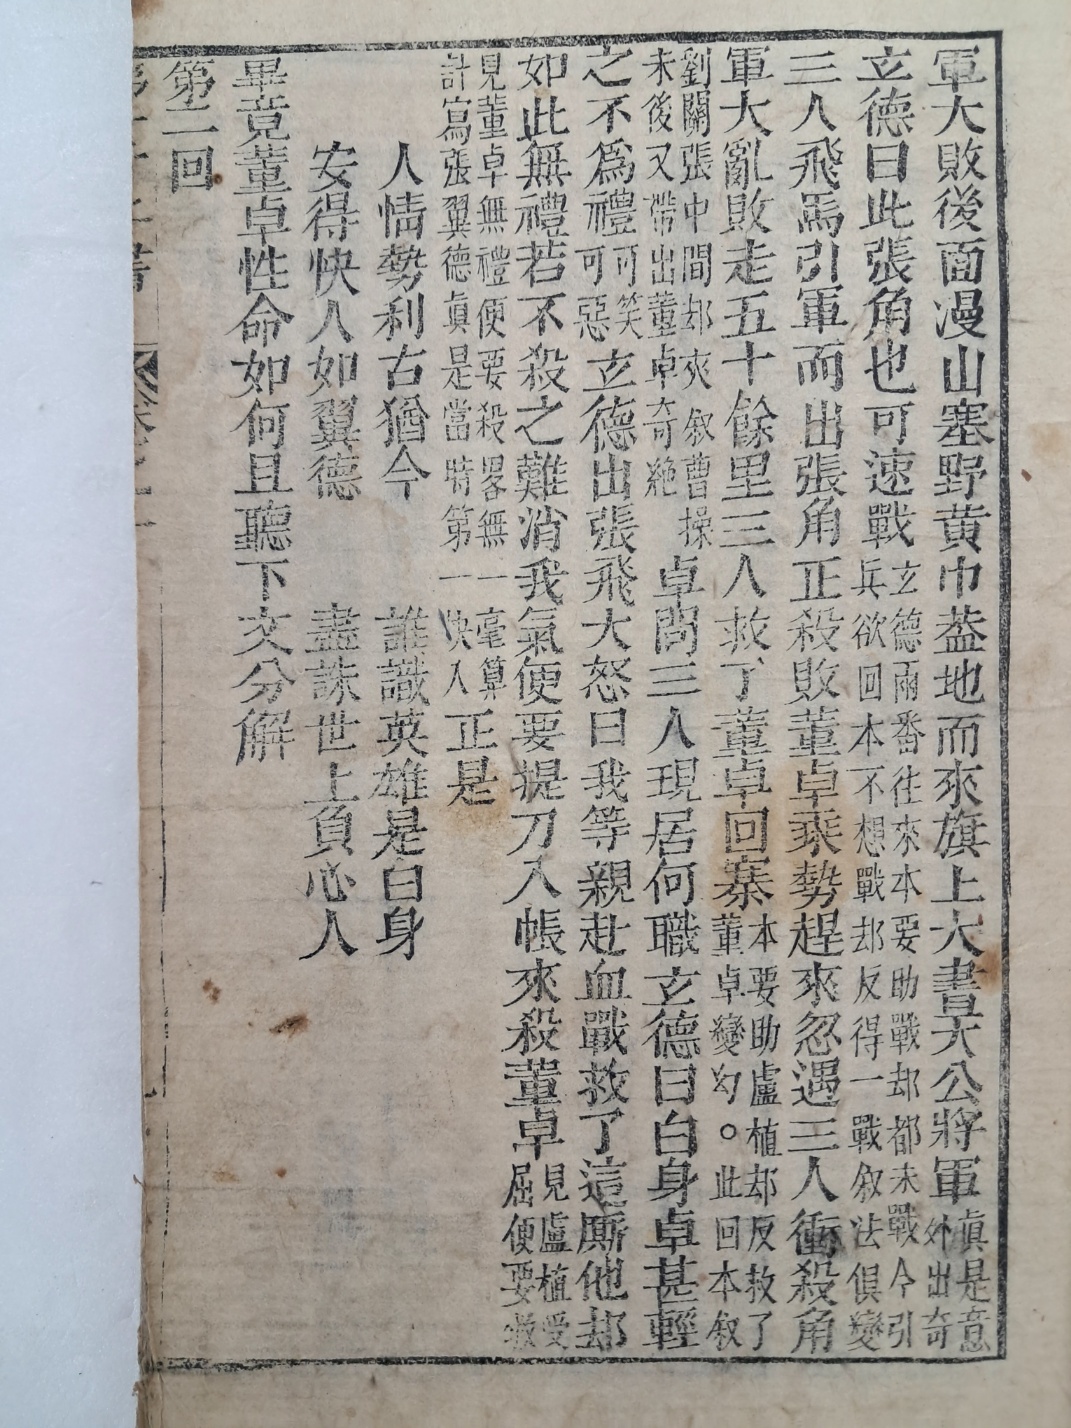 軍大敗後面漫山塞野黄巾葢地而來旗上大書天公將軍眞是意外出奇
玄德曰此張角也可速戰玄德兩番往來本要助戰却都未戰今引兵欲回本不想戰却反得一戰叙法俱變
三人飛馬引軍而出張角正殺敗董卓乘勢趕來忽遇三人衝殺角
軍大亂敗走五十餘里三人救了董卓回寨本要助盧植却反救了董卓變幻。此回本叙
劉關張中間却夾叙曹操未後又帶出董卓奇絶卓問三人現居何職玄德曰白身卓甚輕
之不爲禮可笑可惡玄德出張飛大怒曰我等親赴血戰救了這厮他却
如此無禮若不殺之難消我氣便要提刀入帳來殺董卓見盧植受屈便要救
見董卓無禮便要殺畧無一毫算計寫張翼德眞是當時第一快人正是
人情勢利古猶今 誰識英雄是白身
安得快人如翼德 盡誅世上負心人
畢竟董卓性命如何且聽下文分解
第二回